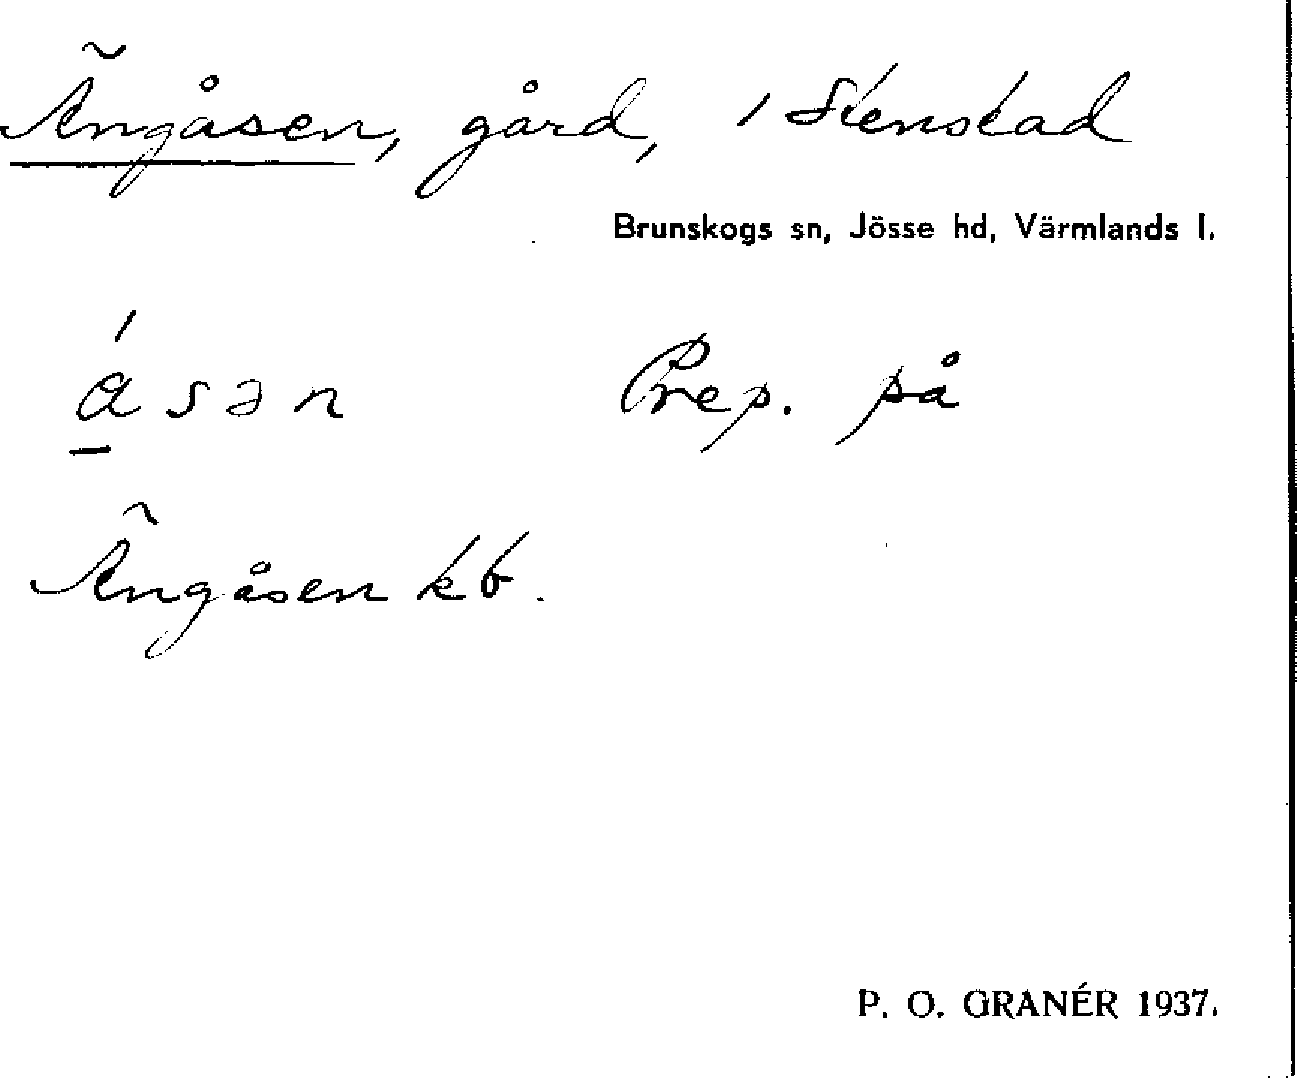 Ängåsen, gård, i Stenstad
Brunskogs sn, Jösse hd, Värmlands l.
á̱sən Prep. på
Ängåsen kb.
P. O. GRANÉR 1937.